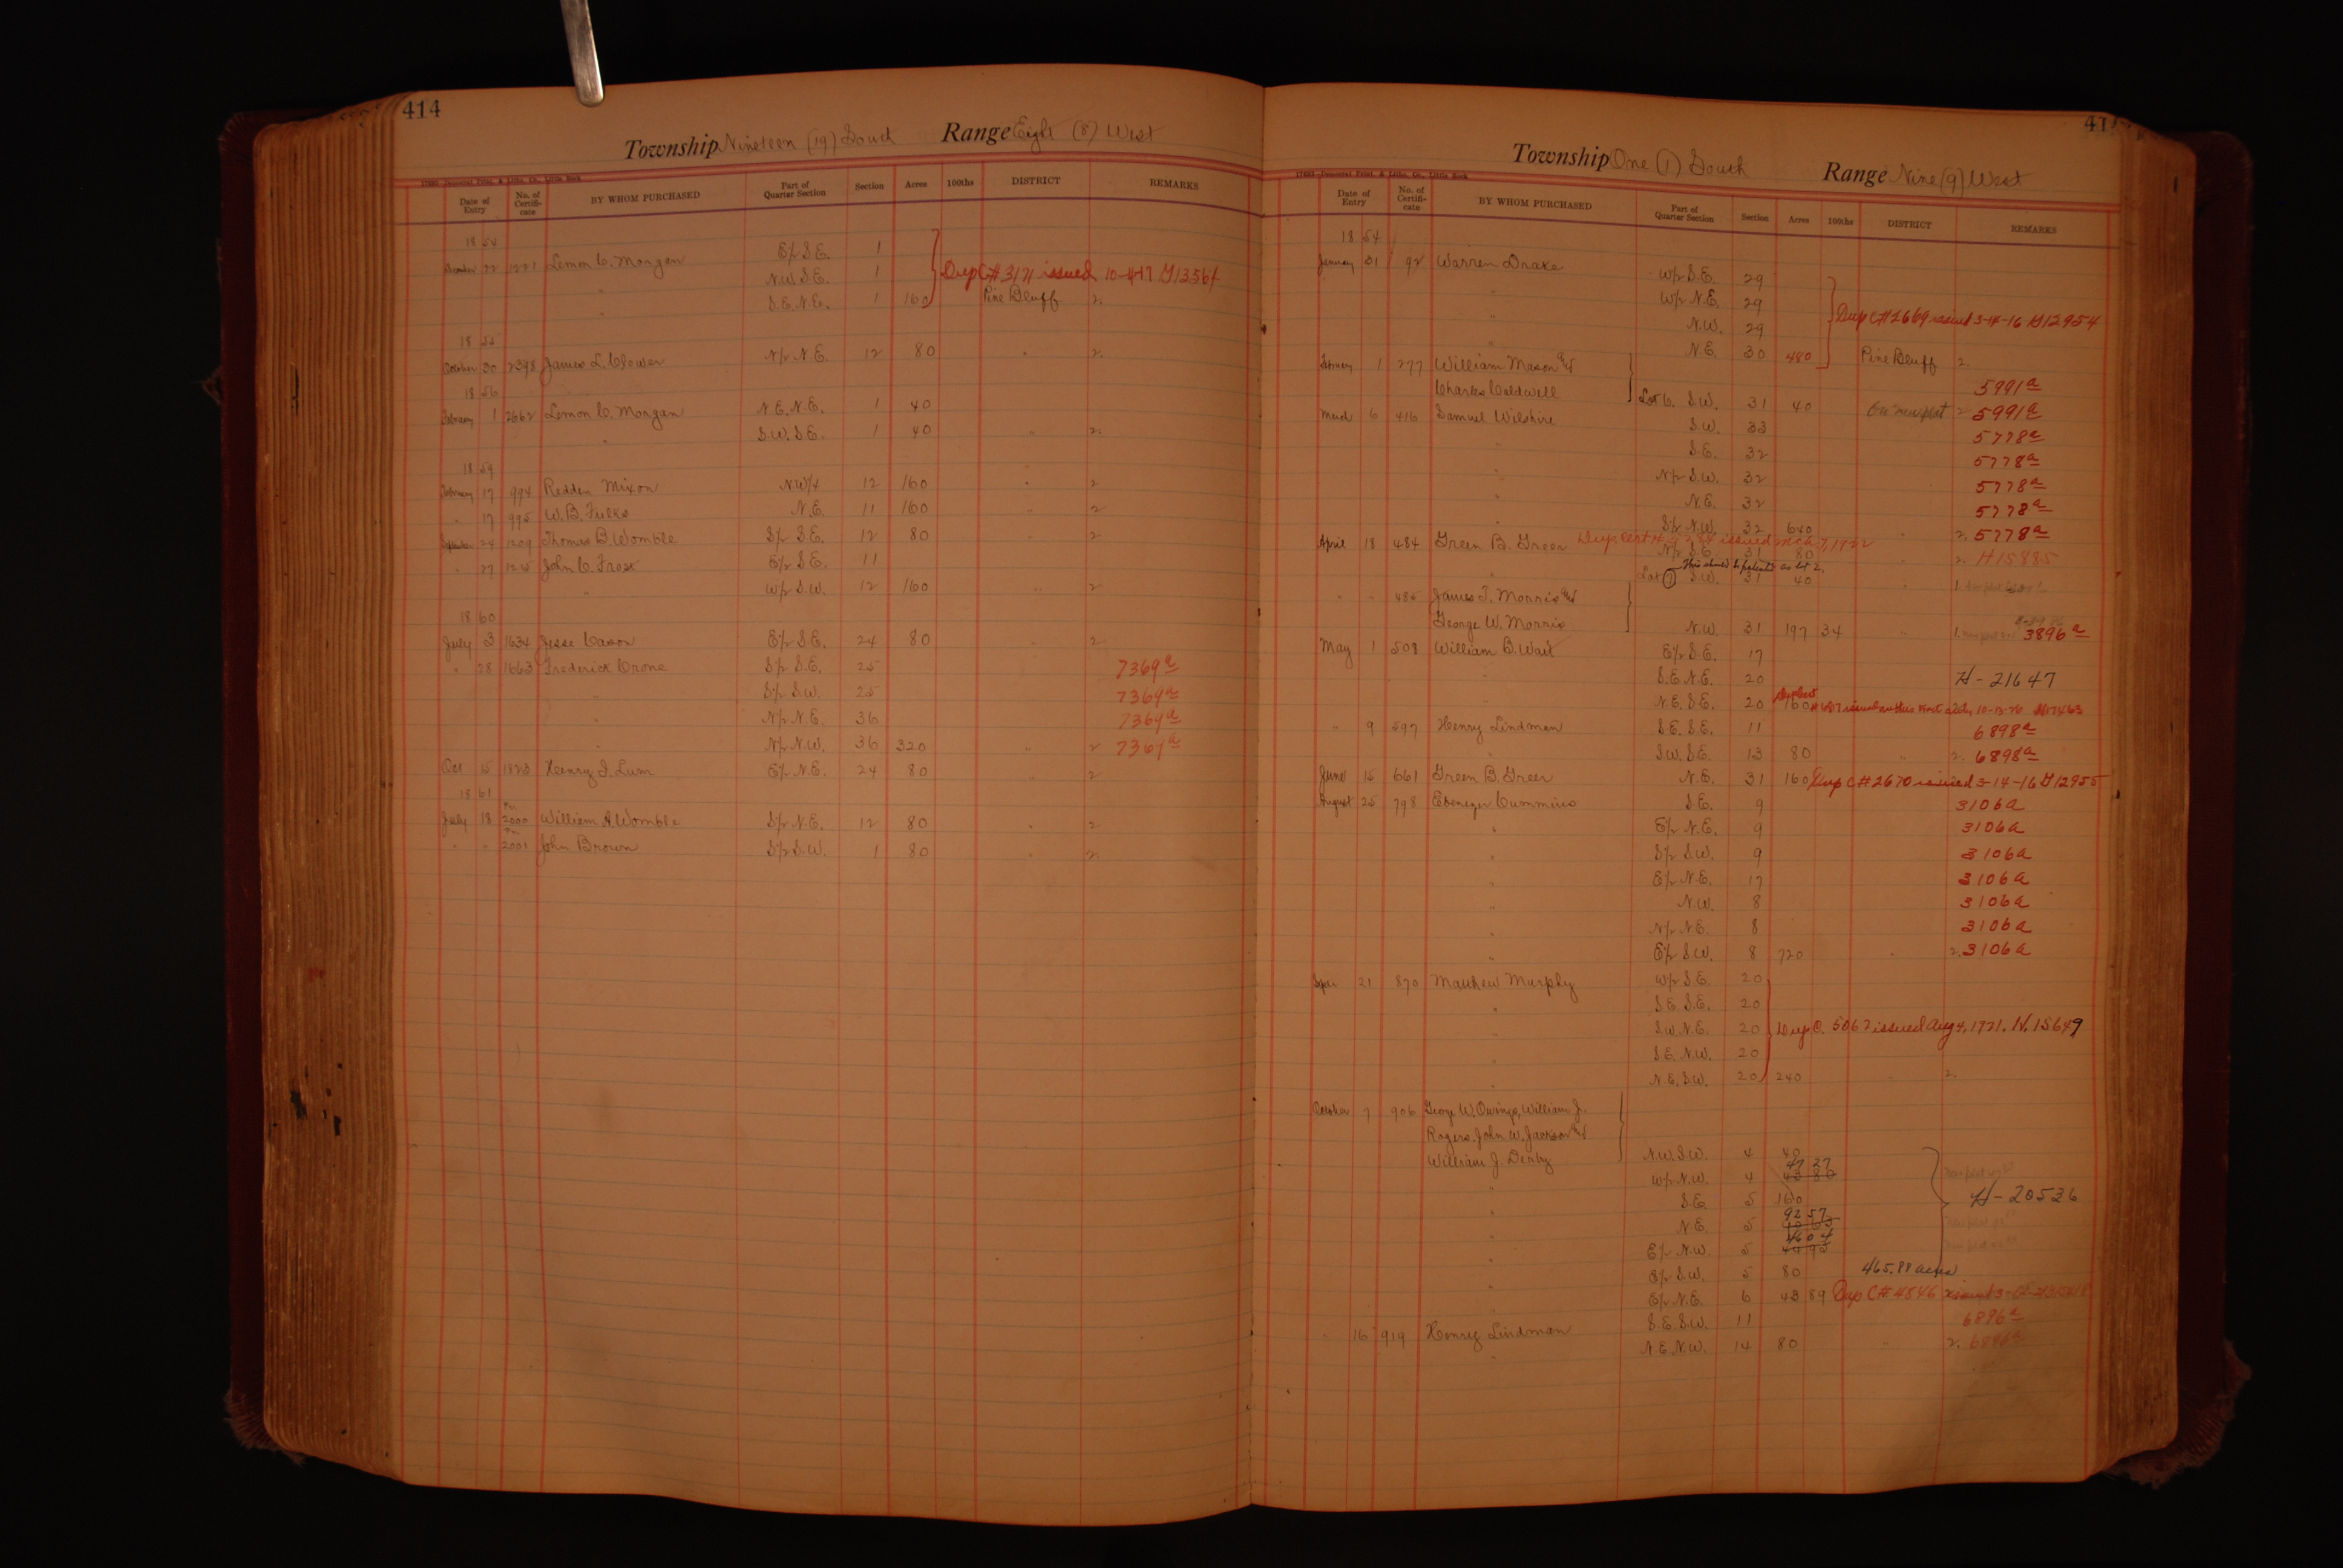 414
Township Nineteen (19) South Range Eight (8) West
Date of Entry No. of Certifi-cate BY WHOM PURCHASED Part of Quarter Section Section Acres 100ths DISTRICT REMARKS
18 54
December 22 1221 Lemon C. Morgan E/2 S.E. 1
" N.W. S.E. 1 Dup C# 3171 issued
" S.E. N.E. 1 160 Pine Bluff 2.
18 55
October 30 2398 James L. Clower N/2 N.E. 12 80 " 2.
18 56
February 1 2662 Lemon C. Morgan N.E. N.E. 1 40
" S.W. S.E. 1 40 " 2.
18 59
February 17 994 Redden Mixon N.W/4 12 160 " 2
" 17 995 W. B. Fulks N.E. 11 160 " 2
September 24 1209 Thomas B. Womble S/2 S.E. 12 80 " 2
" 27 John C. Frost E/2 S.E. 11
" W/2 S.W. 12 160 " 2
18 60
July 3 1634 Jesse Cason E/2 S.E. 24 80 " 2
" 28 1663 Frederick Crone S/2 S.E. 25 7369a
" S/2 S.W. 25 7369a
" N/2 N.E. 36 7369a
" N/2 N.W. 36 320 " 2 7369a
Oct 15 1823 Henry J. Lum E/2 N.E. 24 80 " 2
18 61
July 18 2000 William A. Womble S/2 N.E. 12 80 " 2
" " 2001 John Brown S/2 S.W. 1 80 " 2.
41
Township One (1) South Range Nine (9) West
Date of Entry No. of Certifi-cate BY WHOM PURCHASED Part of Quarter Section Section Acres 100ths DISTRICT REMARKS
18 54
January 31 92 Warren Drake W/2 S.E. 29
" W/2 N.E. 29
" N.W. 29 Dup C# 2669 issued 3-14-16 G12954
N.E. 30 480 Pine Bluff 2.
February 1 277 William Mason and
Charles Caldwell Lot 6. S.W. 31 40 2 5991a
5991a
March 6 416 Samuel Wilshire S.W. 33 5778a
" S.E. 32 5778a
" N/2 S.W. 32 5778a
" N.E. 32 5778a
" S/2 N.W. 32 640 " 2. 5778a
April 18 484 Green B. Greer N/2 S.E. 31 80 2. H15885
Dup Cert # issued Mch 7, 1922
This should be patented as lot 2.
Lot S.W. 31 40
" " 485 James T. Morris and
George W. Morris N.W. 31 197 34 " 3896a
May 1 508 William B. Wait E/2 S.E. 17
" S.E. N.E. 20 H-21647
N.E. S.E. 20 160
" 9 597 Henry Lindman S.E. S.E. 11 6898a
" S.W. S.E. 13 80 " 2. 6898a
June 15 661 Green B. Greer N.E. 31 160 Dup C# 2670 issued 3-14-16 G12955
August 25 798 Ebenezer Cummins S.E. 9 3106a
" E/2 N.E. 9 3106a
" S/2 S.W. 9 3106a
" E/2 N.E. 17 3106a
" N.W. 8 3106a
" N/2 N.E. 8 3106a
" E/2 S.W. 8 720 " 2. 3106a
Sept 21 870 Matthew Murphy W/2 S.E. 20
" S.E. S.E. 20
" S.W. N.E. 20 Dup C. 5062 issued Aug 4, 1921. H. 15649
" S.E. N.W. 20
" N.E. S.W. 20 240 " 2.
October 7 906 George W. Owings, William J.
Rogers, John W. Jackson and
William J. Derby N.W. S.W. 4 40
" W/2 N.W. 4 47 27
" S.E. 5 160 H-20536
" N.E. 5 92 57
" E/2 N.W. 5 46 04
" S/2 S.W. 5 80 465.88 acres
" E/2 N.E. 6 43 89 Dup C# 4846
" 16 919 Henry Lindman S.E. S.W. 11 6896a
" N.E. N.W. 14 80 " 2. 6896a